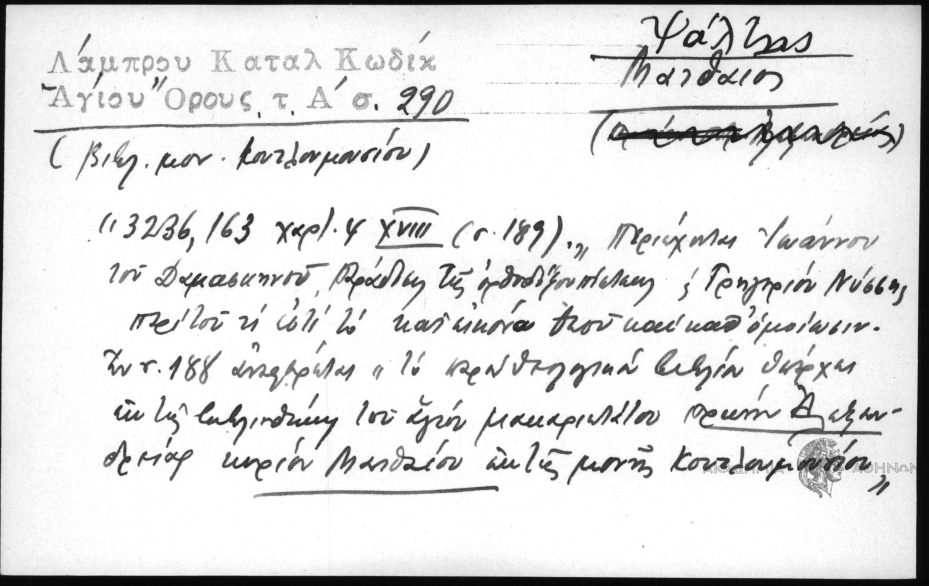 Λάμπρου Καταλ Κωδίκ
Ἁγίου Ὄρους, τ. Α' σ. 290
(Βιβλ. μον. Κουτλουμουσίου)
Ψάλτης
Ματθαῖος
"3236, 163 χαρτ. 4 XVIII (σ. 189). „ Περιέχονται Ἰωάννου
τοῦ Δαμασκηνοῦ, Ἔκδοσις τῆς ὀρθοδόξου πίστεως ς Γρηγορίου Νύσσης
περὶ τοῦ τί ἐστὶ τὸ κατ' εἰκόνα Θεοῦ καὶ καθ' ὁμοίωσιν.
Ἐν σ. 188 ἀναγράφεται „ τὸ παρὸν θεολογικὸν βιβλίον ὑπάρχει
ἐκ τῆς βιβλιοθήκης τοῦ ἁγίου μακαριωτάτου πρώην Ἀλεξαν-
δρείας κυρίου Ματθαίου ἐκ τῆς μονῆς Κουτλουμουσίου „
ΑΘΗΝΩΝ